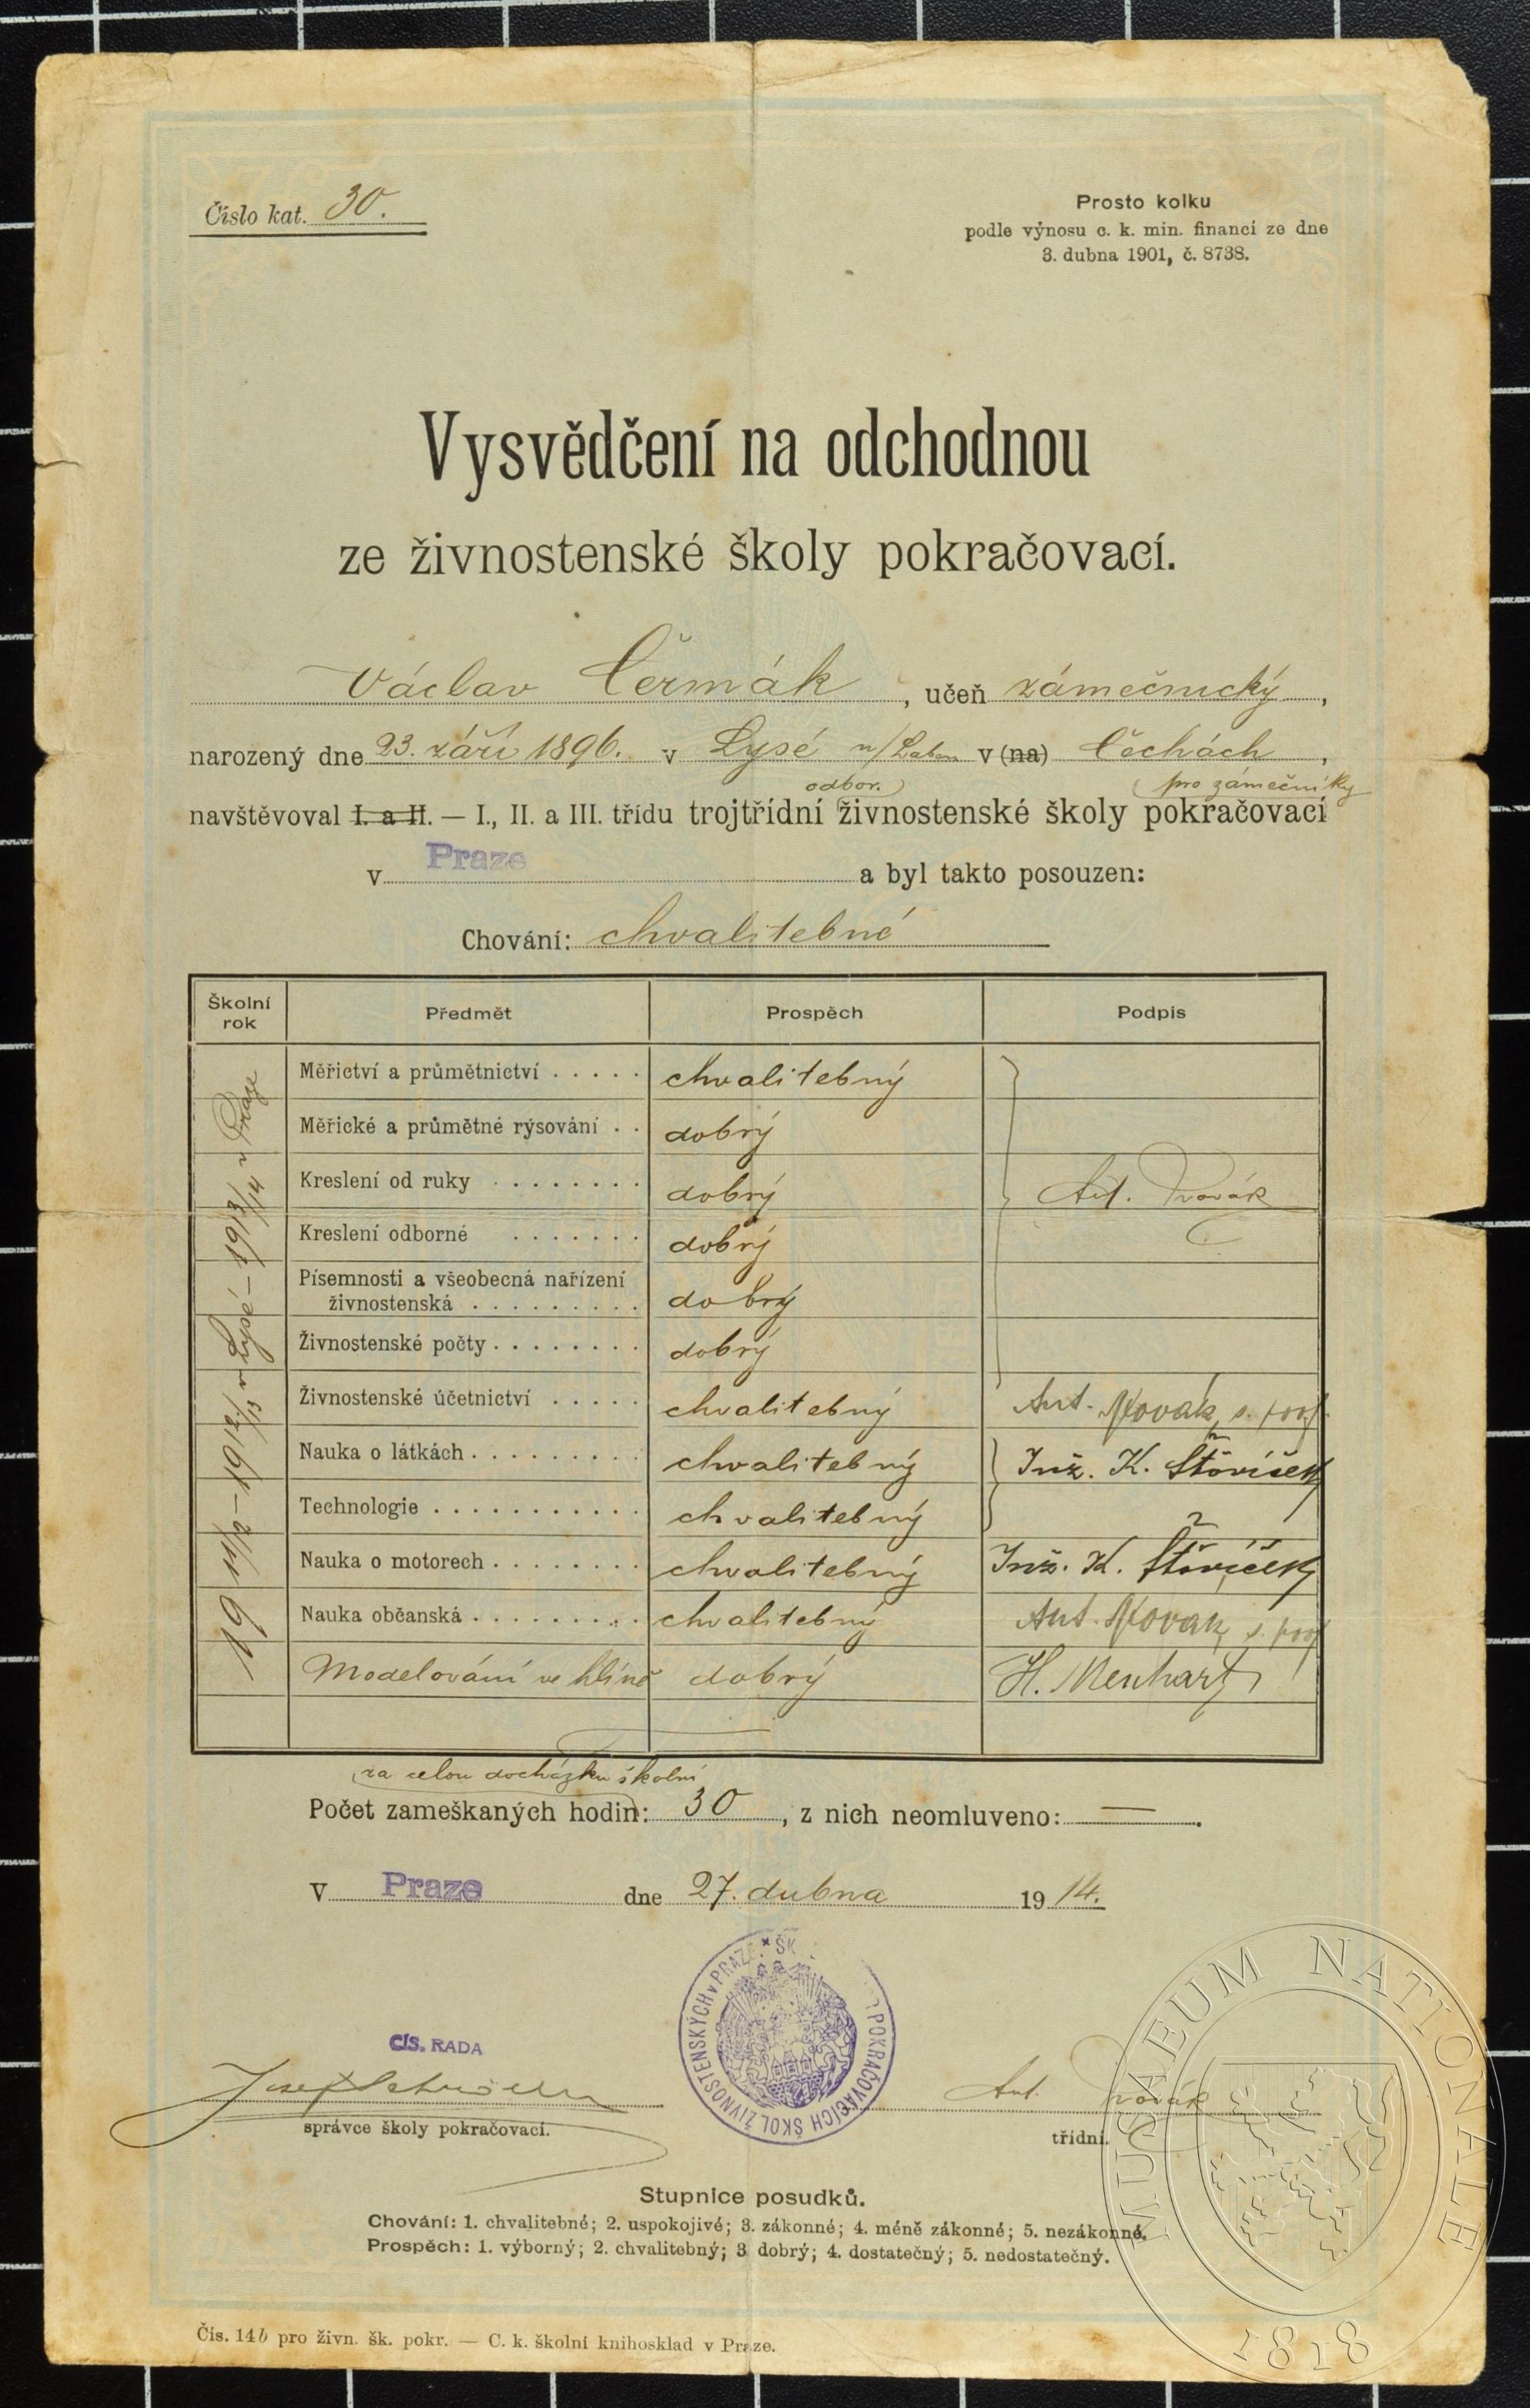 Číslo kat. 30.
Prosto kolku
podle výnosu c. k. min. financí ze dne
3. dubna 1901, č. 8738.
Vysvědčení na odchodnou
ze živnostenské školy pokračovací.
Václav Čermák, učeň zámečnický,
narozený dne 23. září 1896. v Lysé n/Labem v (na) Čechách,
odbor. pro zámečníky
navštěvoval I. a II. — I., II. a III. třídu trojtřídní živnostenské školy pokračovací
v Praze a byl takto posouzen:
Chování: chvalitebné
Školní rok Předmět Prospěch Podpis
1911/12 – 1912/13 v Lysé – 1913/14 v Praze
Měřictví a průmětnictví . . . . . chvalitebný
Měřické a průmětné rýsování . . dobrý
Kreslení od ruky . . . . . . . . dobrý Ant. Dvořák
Kreslení odborné . . . . . . . dobrý
Písemnosti a všeobecná nařízení
živnostenská . . . . . . . . . dobrý
Živnostenské počty . . . . . . . . dobrý
Živnostenské účetnictví . . . . . chvalitebný Ant. Novák, s. prof.
Nauka o látkách . . . . . . . . . chvalitebný Inž. K. Šťovíček
Technologie . . . . . . . . . . . chvalitebný
Nauka o motorech . . . . . . . . chvalitebný Inž. K. Šťovíček
Nauka občanská . . . . . . . . . chvalitebný Ant. Novák, s. prof.
Modelování ve hlíně dobrý H. Menhart
za celou docházku školní
Počet zameškaných hodin: 30, z nich neomluveno: — .
V Praze dne 27. dubna 1914.
ŠK POKRAČOVACÍCH ŠKOL ŽIVNOSTENSKÝCH v PRAZE.
CÍS. RADA
Josef
správce školy pokračovací.
Ant. Dvořák
třídní.
Stupnice posudků.
Chování: 1. chvalitebné; 2. uspokojivé; 3. zákonné; 4. méně zákonné; 5. nezákonné.
Prospěch: 1. výborný; 2. chvalitebný; 3 dobrý; 4. dostatečný; 5. nedostatečný.
Čís. 14b pro živn. šk. pokr. — C. k. školní knihosklad v Praze.
MUSAEUM NATIONALE
1818